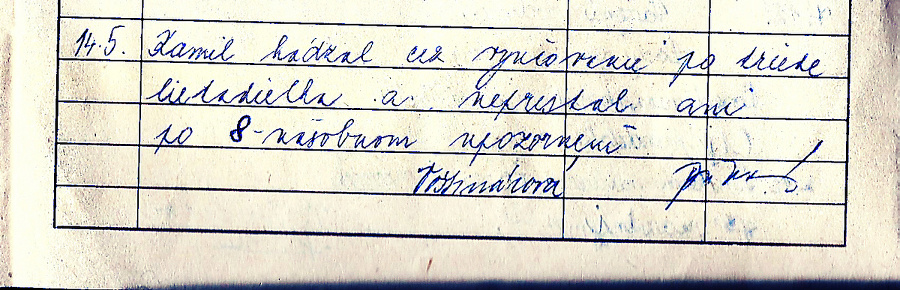 14.5. Kamil hádzal cez vyučovanie po triede
lietadielka a neprestal ani
po 8-násobnom upozornení